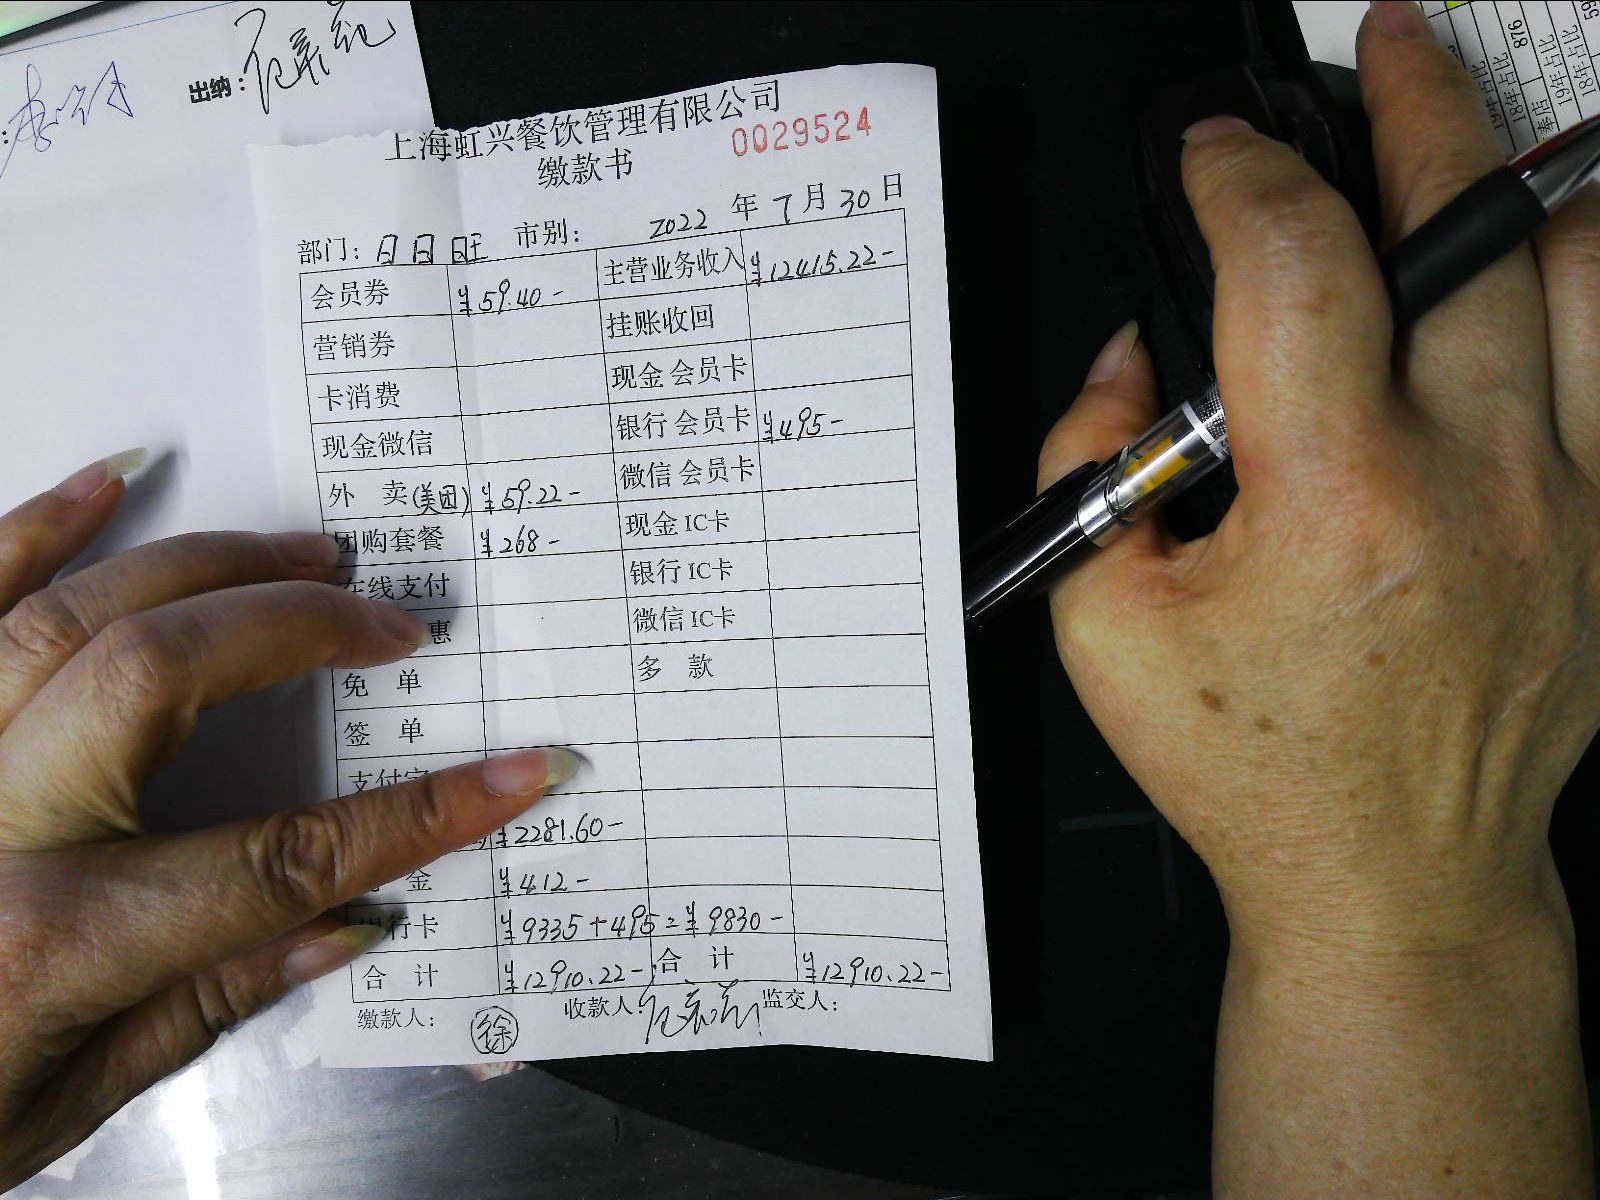 出纳:
876
19年占比
18年占比
19年占比
18年占比
上海虹兴餐饮管理有限公司
缴款书
0029524
部门: 日日旺 市别: 2022 年 7 月 30 日
会员券 ¥59.40- 主营业务收入 ¥12415.22-
营销券 挂账收回
卡消费 现金 会员卡
现金微信 银行 会员卡 ¥495-
外 卖(美团) ¥59.22- 微信 会员卡
团购套餐 ¥268- 现金 IC卡
在线支付 银行 IC卡
惠 微信 IC卡
免 单 多 款
签 单
支付宝
¥2281.60-
金 ¥412-
银行卡 ¥9335+495=¥9830-
合 计 ¥12910.22- 合 计 ¥12910.22-
缴款人: 徐 收款人: 监交人: